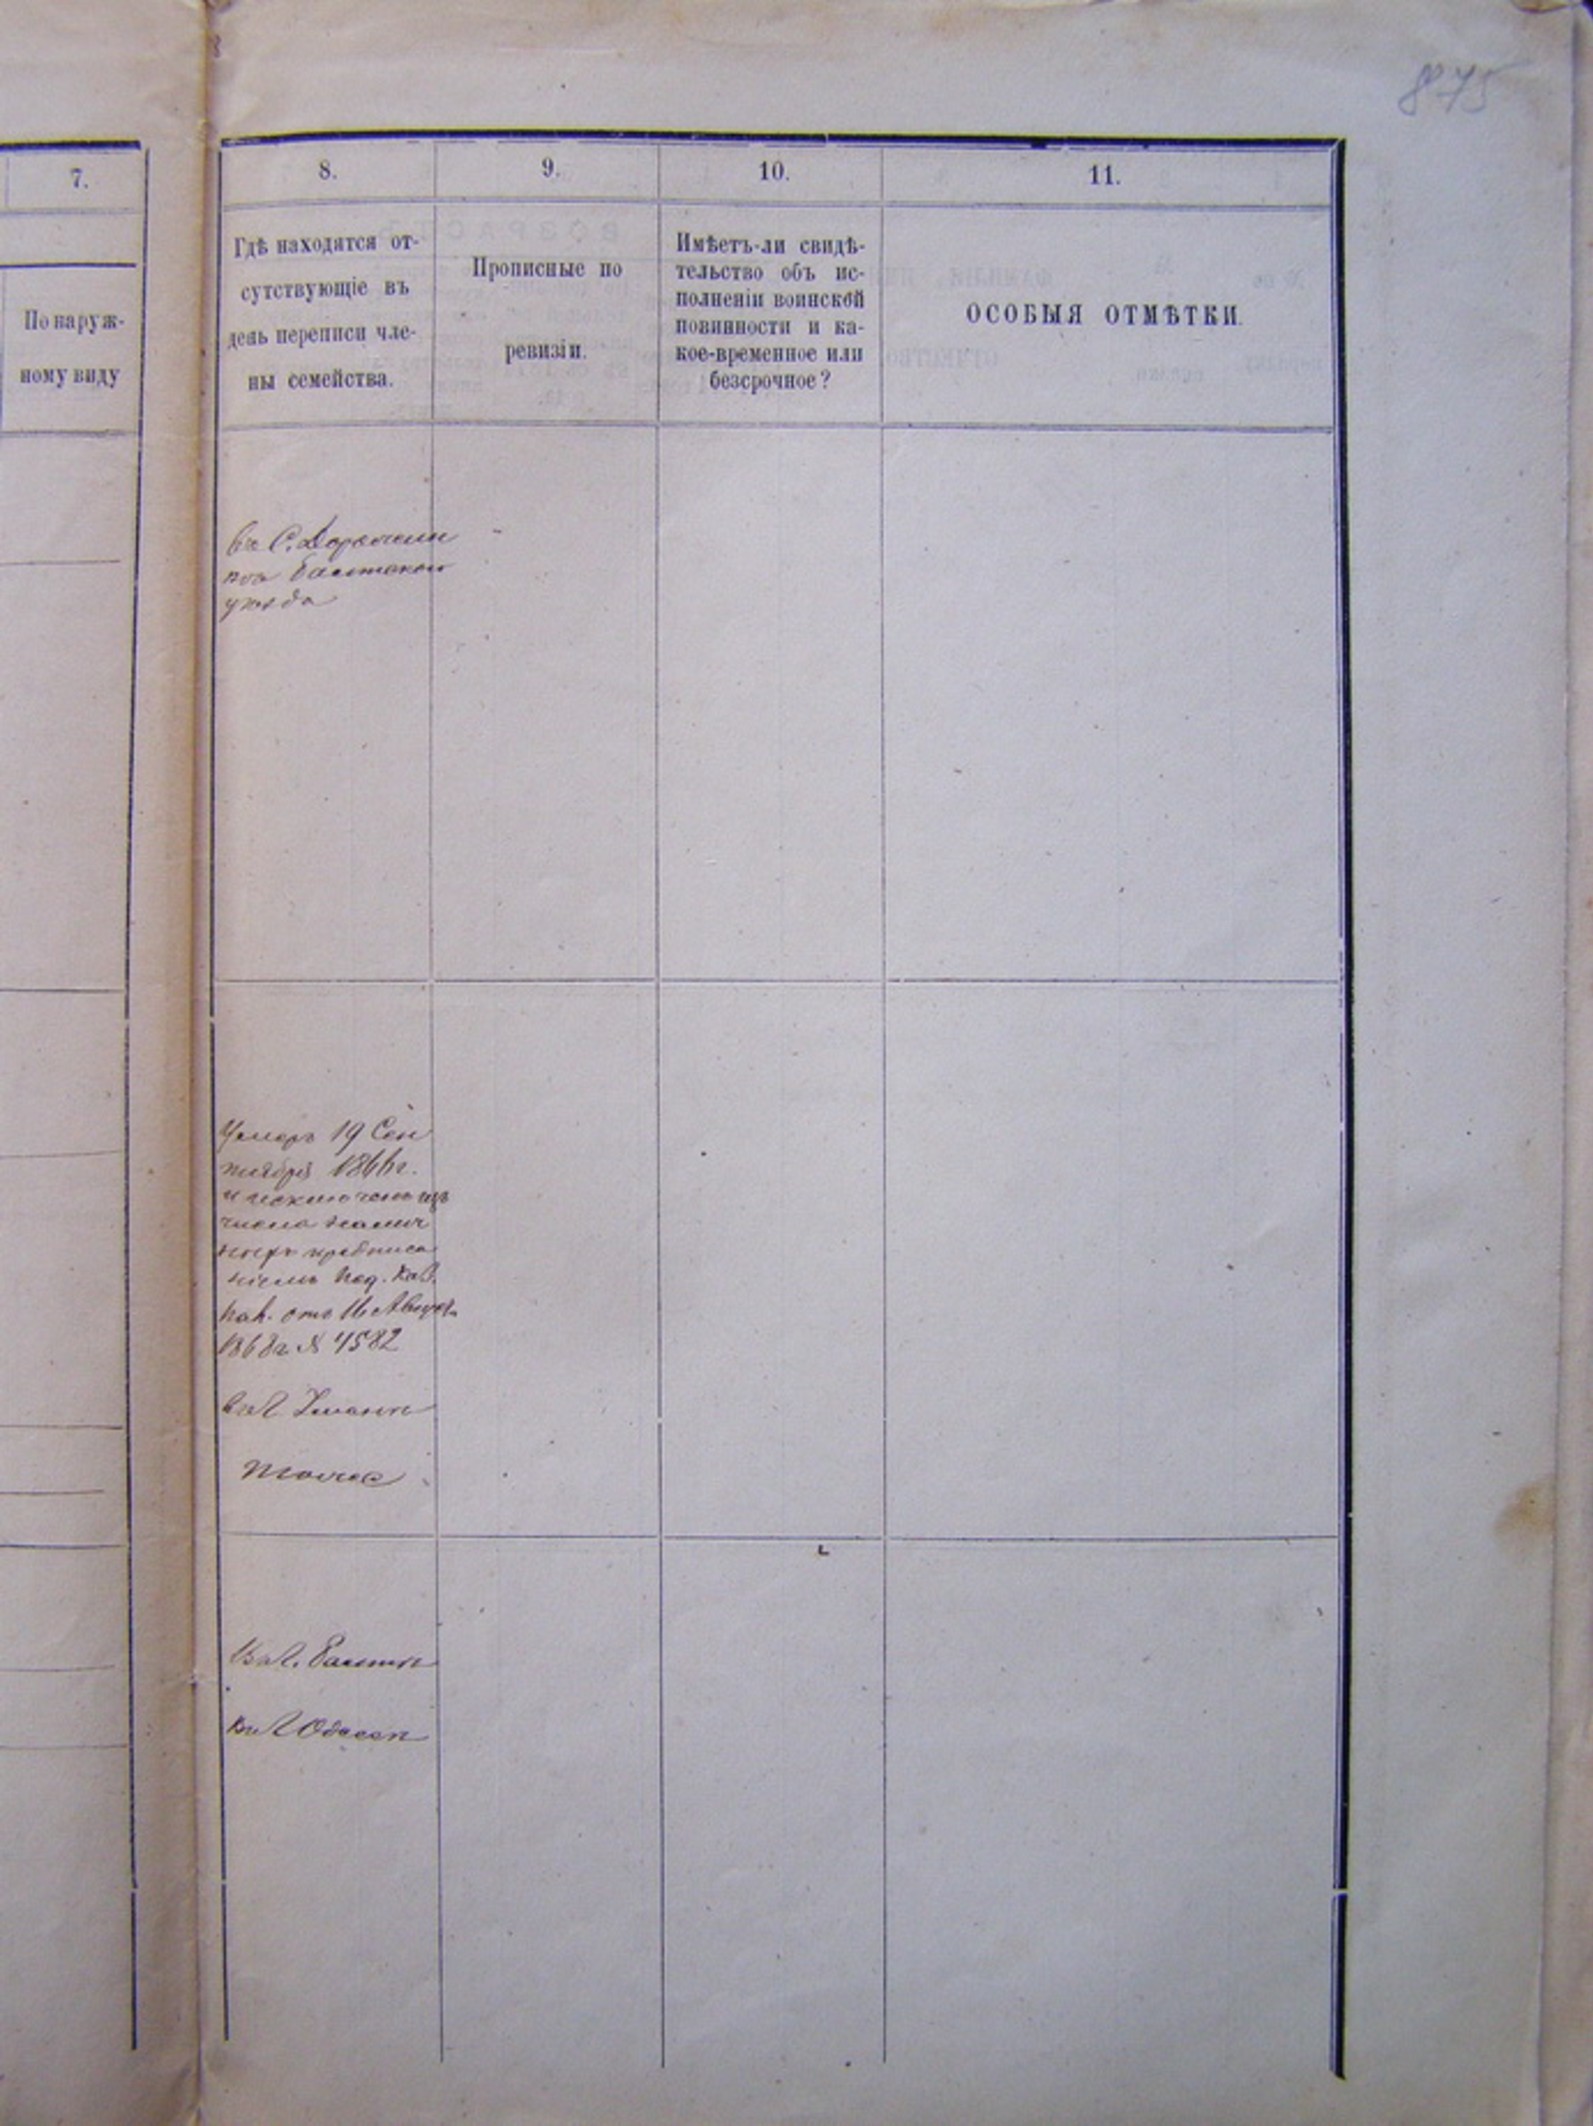 875
7.
По наруж-
ному виду
8.
9.
10.
11.
Гдѣ находятся от-
сутствующіе въ
день переписи чле-
ны семейства.
Прописные по
ревизіи.
Имѣетъ-ли свидѣ-
тельство объ ис-
полненіи воинской
повинности и ка-
кое-временное или
безсрочное?
ОСОБЫЯ ОТМѢТКИ.
въ С.
Балтскаго
уѣзда
Умеръ 19 Сен
тября 1866г.
и исключенъ изъ
числа налич
ныхъ предписа
ніемъ Под. Каз.
Пал. отъ 16 Август.
1868г. № 4582
въ г. Умани
тоже
Въ г. Балтѣ
въ г. Одессѣ